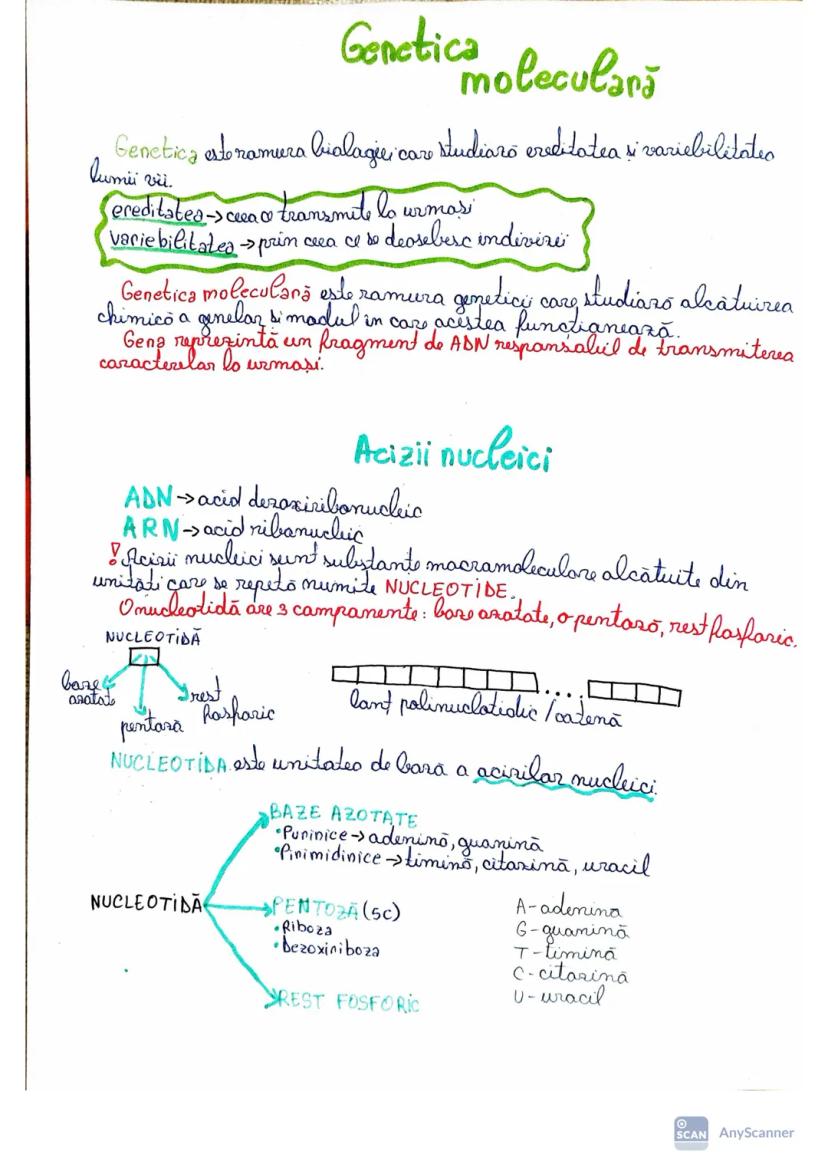 Genetica
moleculară
Genetica este ramura biologiei care studiază ereditatea și variebilitatea
lumii vii.
ereditatea → ceea ce transmite la urmași
variebilitatea → prin ceea ce se deosebesc indivizii
Genetica moleculară este ramura geneticii care studiază alcătuirea
chimică a genelor și modul în care acestea funcționează.
Gena reprezintă un fragment de ADN responsabil de transmiterea
caracterelor la urmași.
Acizii nucleici
ADN → acid dezoxiribonucleic
ARN → acid ribonucleic
! Acizii nucleici sunt substanțe macromoleculare alcătuite din
unități care se repetă numite NUCLEOTIDE.
O nucleotidă are 3 componente: baze azotate, o pentoză, rest fosforic.
NUCLEOTIDĂ
baze
azotate
pentoză
rest
fosforic
.... 
lanț polinuclotidic / catenă
NUCLEOTIDA este unitatea de bază a acizilor nucleici.
NUCLEOTIDĂ
BAZE AZOTATE
• Purinice → adenină, guanină
• Pirimidinice → timină, citozină, uracil
PENTOZĂ (5C)
• Riboza
• Dezoxiriboza
REST FOSFORIC
A - adenina
G - guanină
T - timină
C - citozină
U - uracil
SCAN AnyScanner